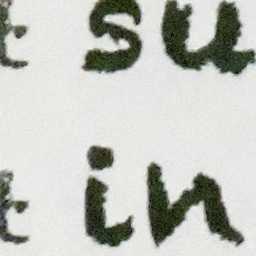 t su
t in